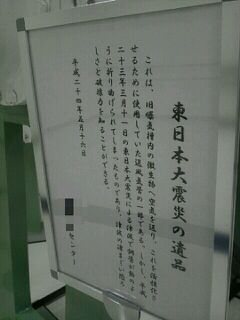 東日本大震災の遺品
これは、旧曝気槽内の微生物へ空気を送り、これを活性化さ
せるために使用していた送風気管の一部である。しかし、平成
二十三年三月十一日の東日本大震災による津波で鋼管が飴のよ
うに折り曲げられてしまったものであり、津波の凄まじい恐ろ
しさと破壊力を知ることができる。
平成二十四年五月十六日
センター